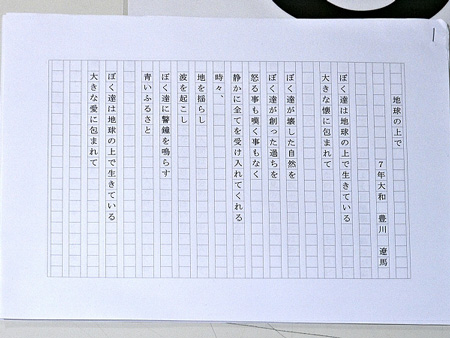 地球の上で
7年大和 豊川 遼馬
ぼく達は地球の上で生きている
大きな懐に包まれて
ぼく達が壊した自然を
ぼく達が創った過ちを
怒る事も嘆く事もなく
静かに全てを受け入れてくれる
時々、
地を揺らし
波を起こし
ぼく達に警鐘を鳴らす
青いふるさと
ぼく達は地球の上で生きている
大きな愛に包まれて